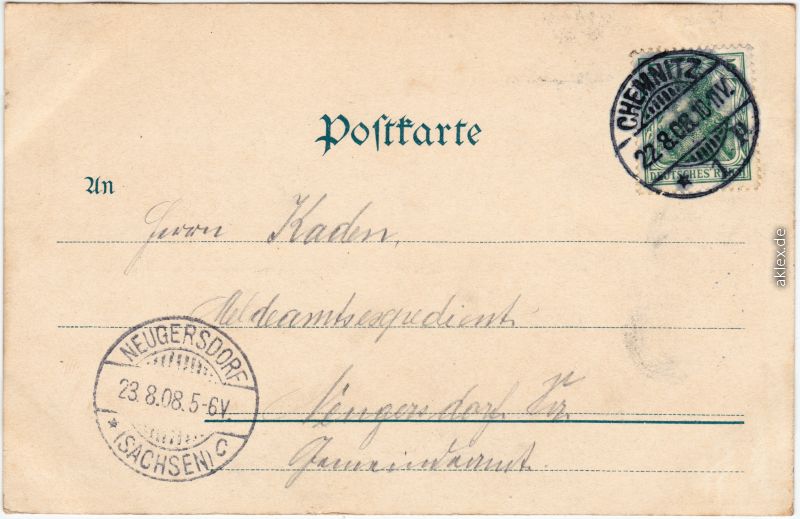 Postkarte
CHEMNITZ
22.8.08.10-11V.
* 1
DEUTSCHES REICH
An
Herrn Kaden,
Meldeamtsexpedient
Neugersdorf
Gemeindeamt.
NEUGERSDORF
23.8.08.5-6V.
* (SACHSEN) C
aklex.de